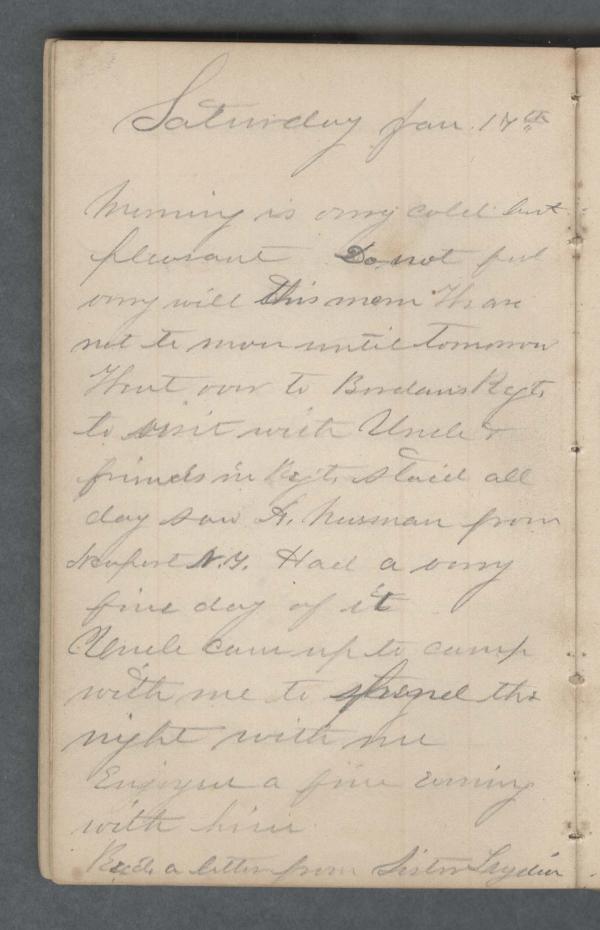 Saturday Jan. 17th
Morning is very cold but
pleasant Do not feel
very well this morn We are
not to move until tomorrow
Went over to Bordans Regt.
to visit with Uncle &
friends in Regt. Staid all
day saw A. from
Newport N.Y. Had a very
fine day of it
Uncle came up to camp
with me to spend the
night with me
Enjoyed a fine evening
with him
Recd. a letter from Sister